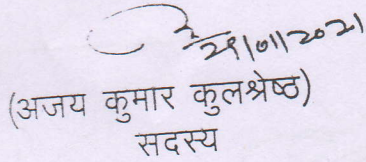 29/01/2021
(अजय कुमार कुलश्रेष्ठ)
सदस्य